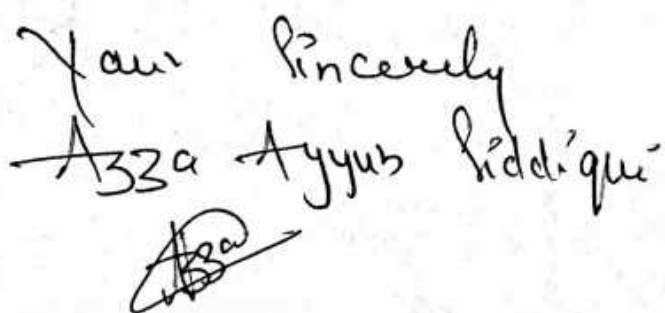 Your Sincerely
Azza Ayyub Siddiqui
Azza